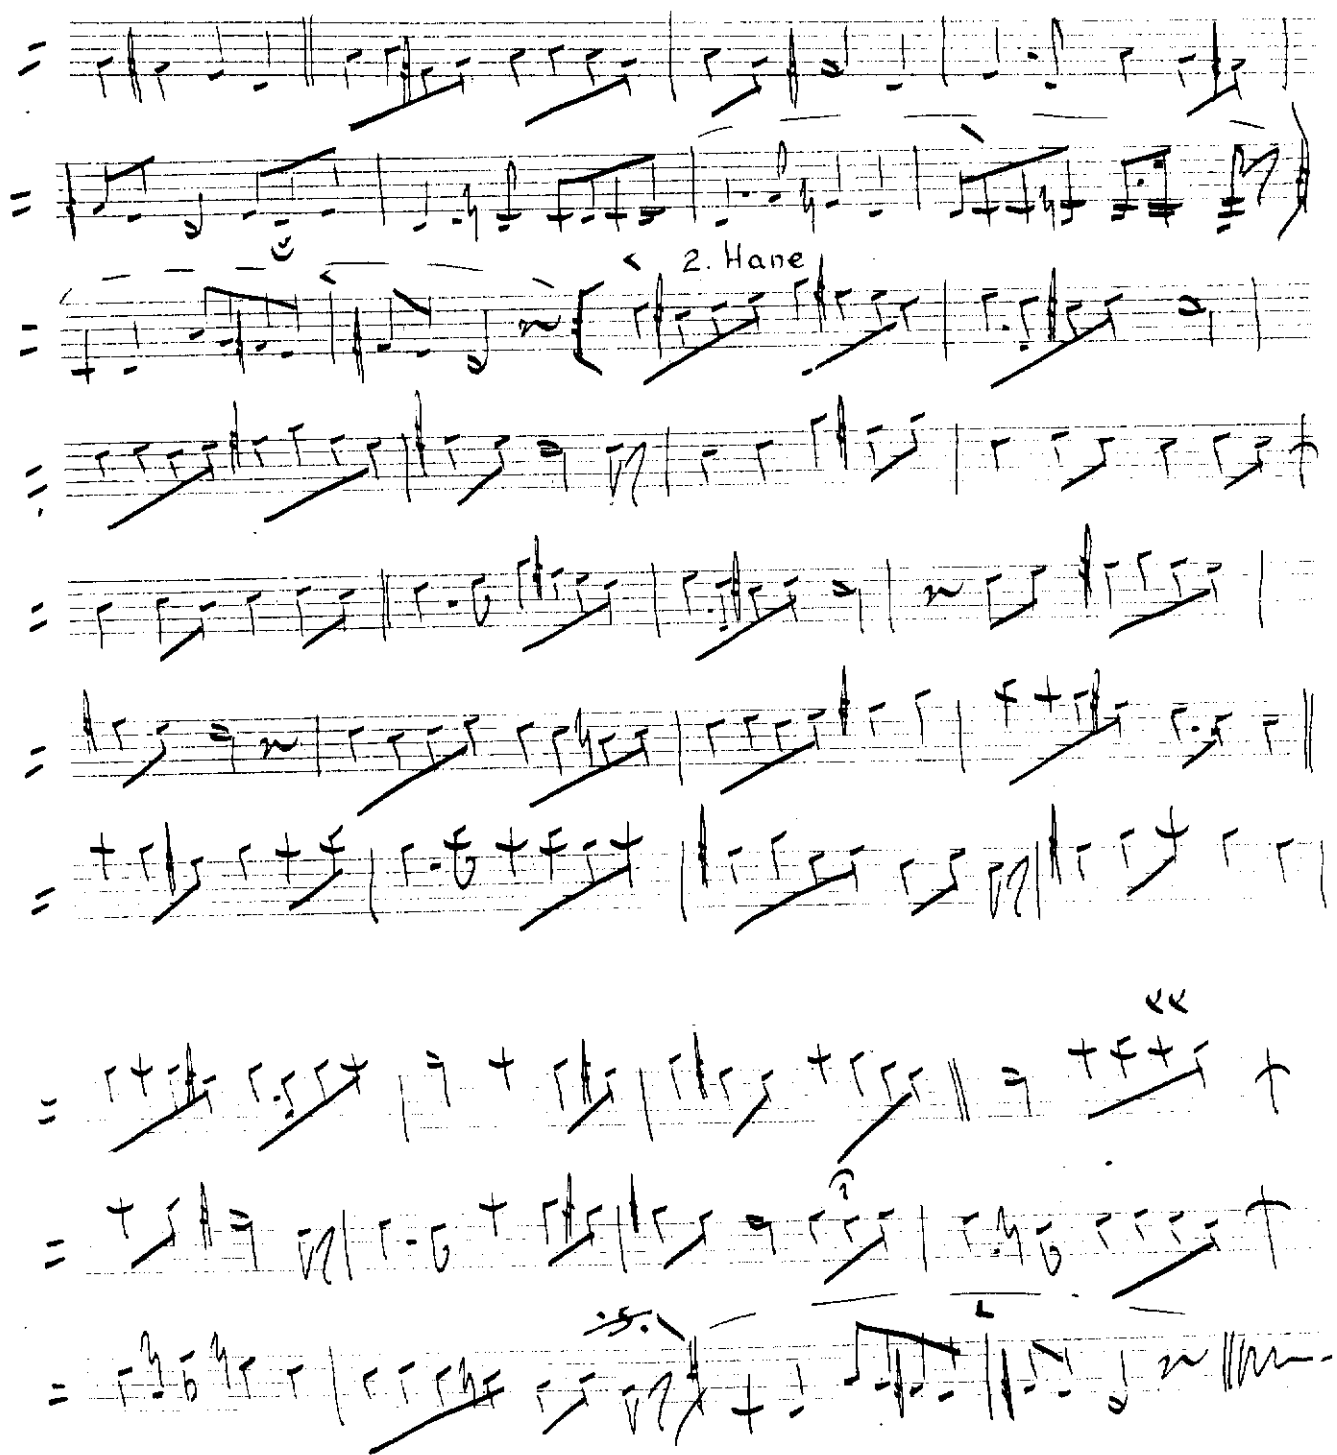 2. Hane